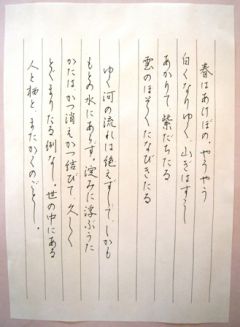 春はあけぼの。やうやう
白くなりゆく、山ぎはすこし
あかりて、紫だちたる
雲のほそくたなびきたる
ゆく河の流れは絶えずして、しかも
もとの水にあらず。淀みに浮ぶうた
かたはかつ消えかつ結びて久しく
とどまりたる例なし。世の中にある
人と栖と、またかくのごとし。